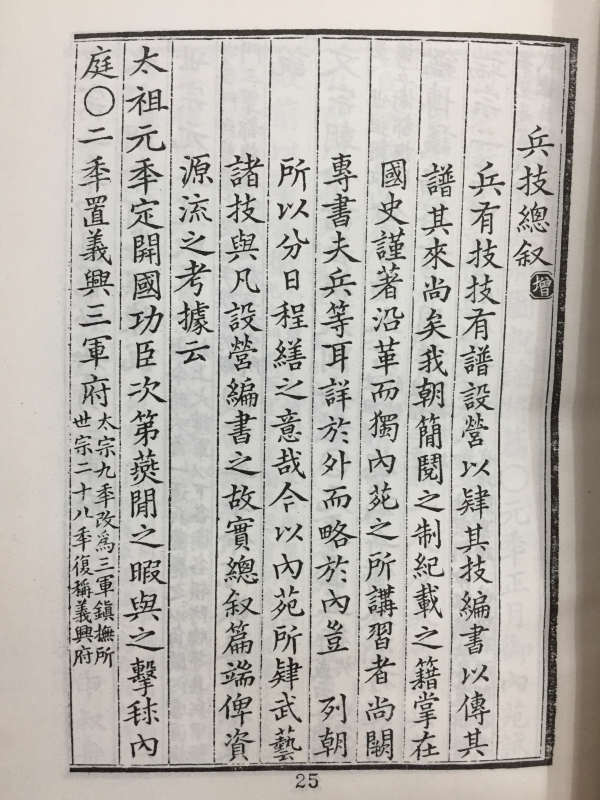 兵技總叙 增
兵有技技有譜設營以肄其技編書以傳其
譜其來尚矣我朝簡閱之制紀載之籍掌在
國史謹著沿革而獨內苑之所講習者尚闕
專書夫兵等耳詳於外而略於內豈 列朝
所以分日程繕之意哉今以內苑所肄武藝
諸技與凡設營編書之故實總叙篇端俾資
源流之考據云
太祖元秊定開國功臣次第燕閒之暇與之擊毬內
庭〇二秊置義興三軍府 太宗九秊改爲三軍鎭撫所
世宗二十八秊復稱義興府
25